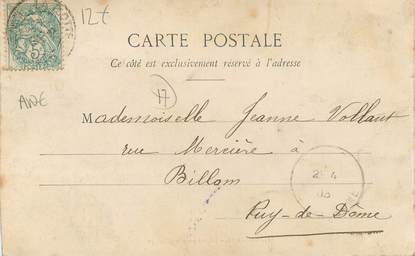 127
CARTE POSTALE
Ce côté est exclusivement réservé à l'adresse
17
Mademoiselle Jeanne Vollant
rue Mercière à
Billom
Puy-de-Dôme